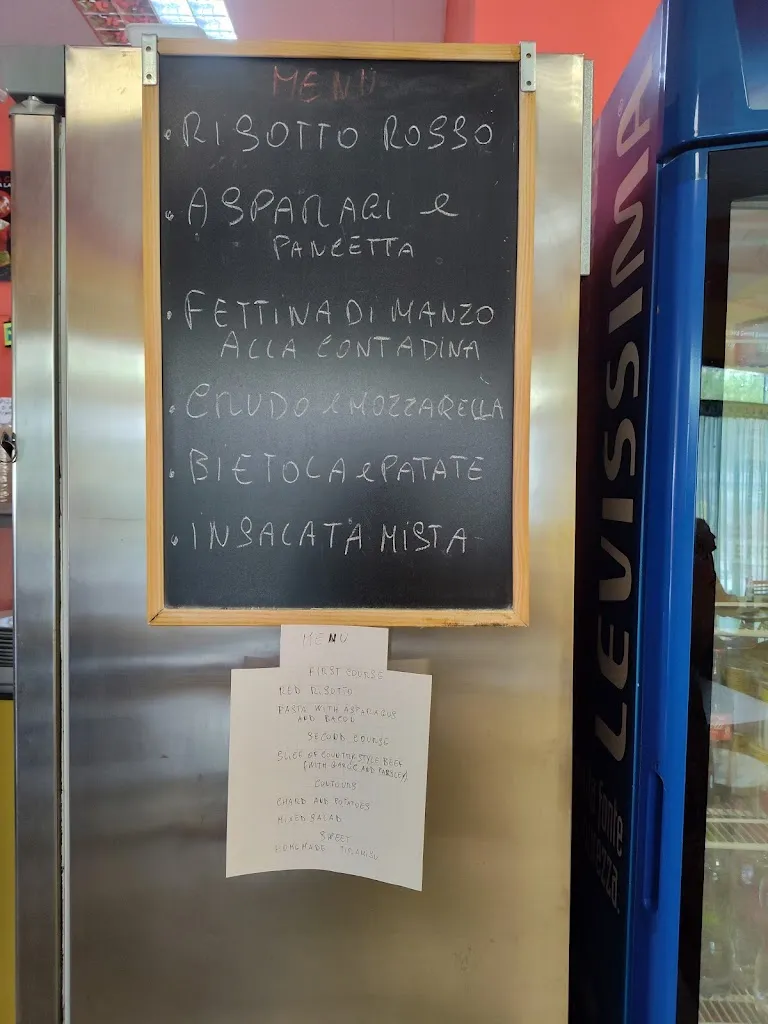 MENU
• RISOTTO ROSSO
• ASPARAGI e
PANCETTA
• FETTINA DI MANZO
ALLA CONTADINA
• CRUDO e MOZZARELLA
• BIETOLA e PATATE
• INSALATA MISTA
MENU
FIRST COURSE
RED RISOTTO
PASTA WITH ASPARAGUS
AND BACON
SECOND COURSE
SLICE OF COUNTRY STYLE BEEF
(WITH GARLIC AND PARSLEY)
CONTOURS
CHARD AND POTATOES
MIXED SALAD
SWEET
HOMEMADE TIRAMISU
LEVISSIMA
fonte